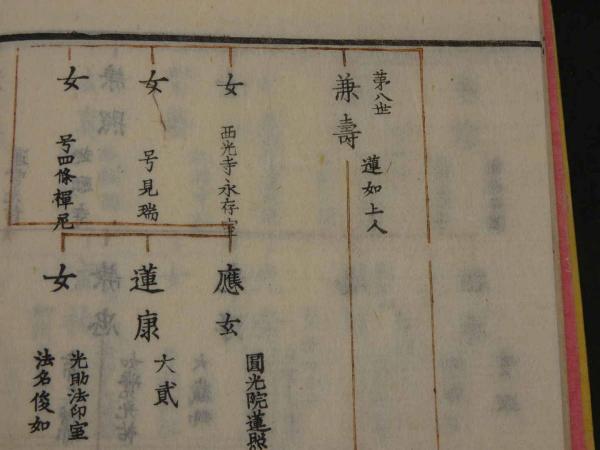 第八世
兼壽
蓮如上人
女
西光寺永存室
女
号見瑞
女
号四條禪尼
應玄
圓光院蓮照
蓮康
大貳
女
光助法印室
法名俊如